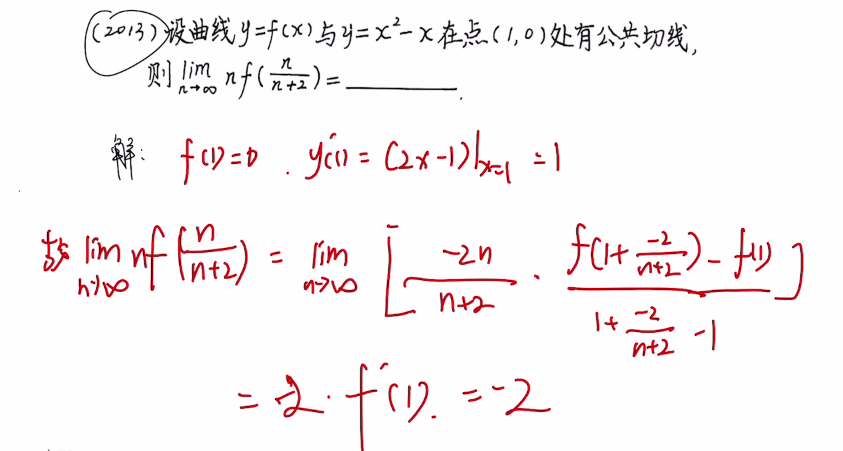 (2013)设曲线y=f(x)与y=x²-x在点(1,0)处有公共切线,
则 lim_{n→∞} n f(n/(n+2)) = ______.
解: f(1)=0 . y'(1) = (2x-1)|_{x=1} = 1
故 lim_{n→∞} nf(n/(n+2)) = lim_{n→∞} [ -2n/(n+2) · (f(1+ -2/(n+2)) - f(1))/(1+ -2/(n+2) -1) ]
= -2 · f'(1). = -2